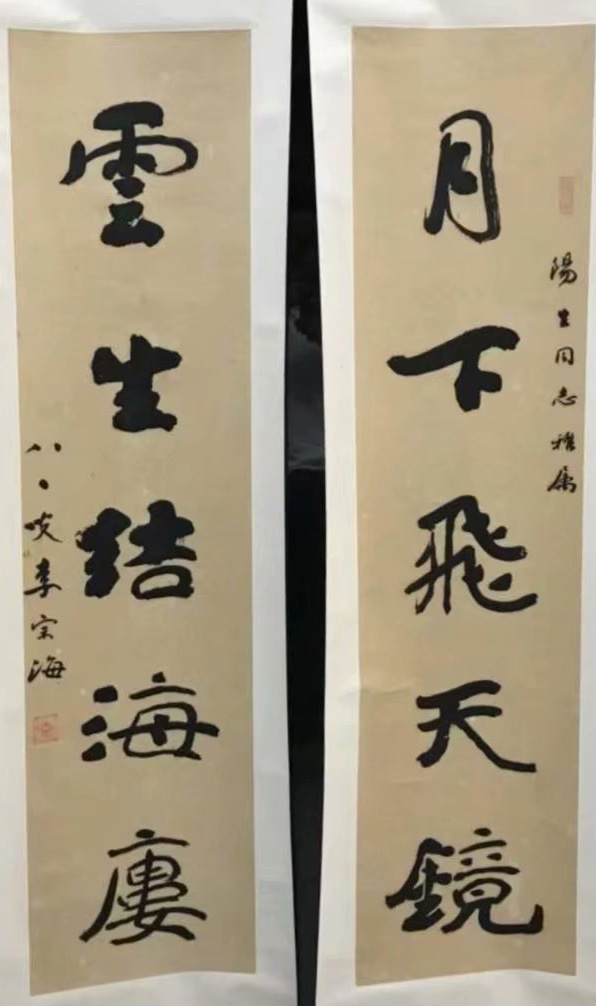 陽生同志雅属
月下飛天鏡
雲生結海廔
八、叟李宗海